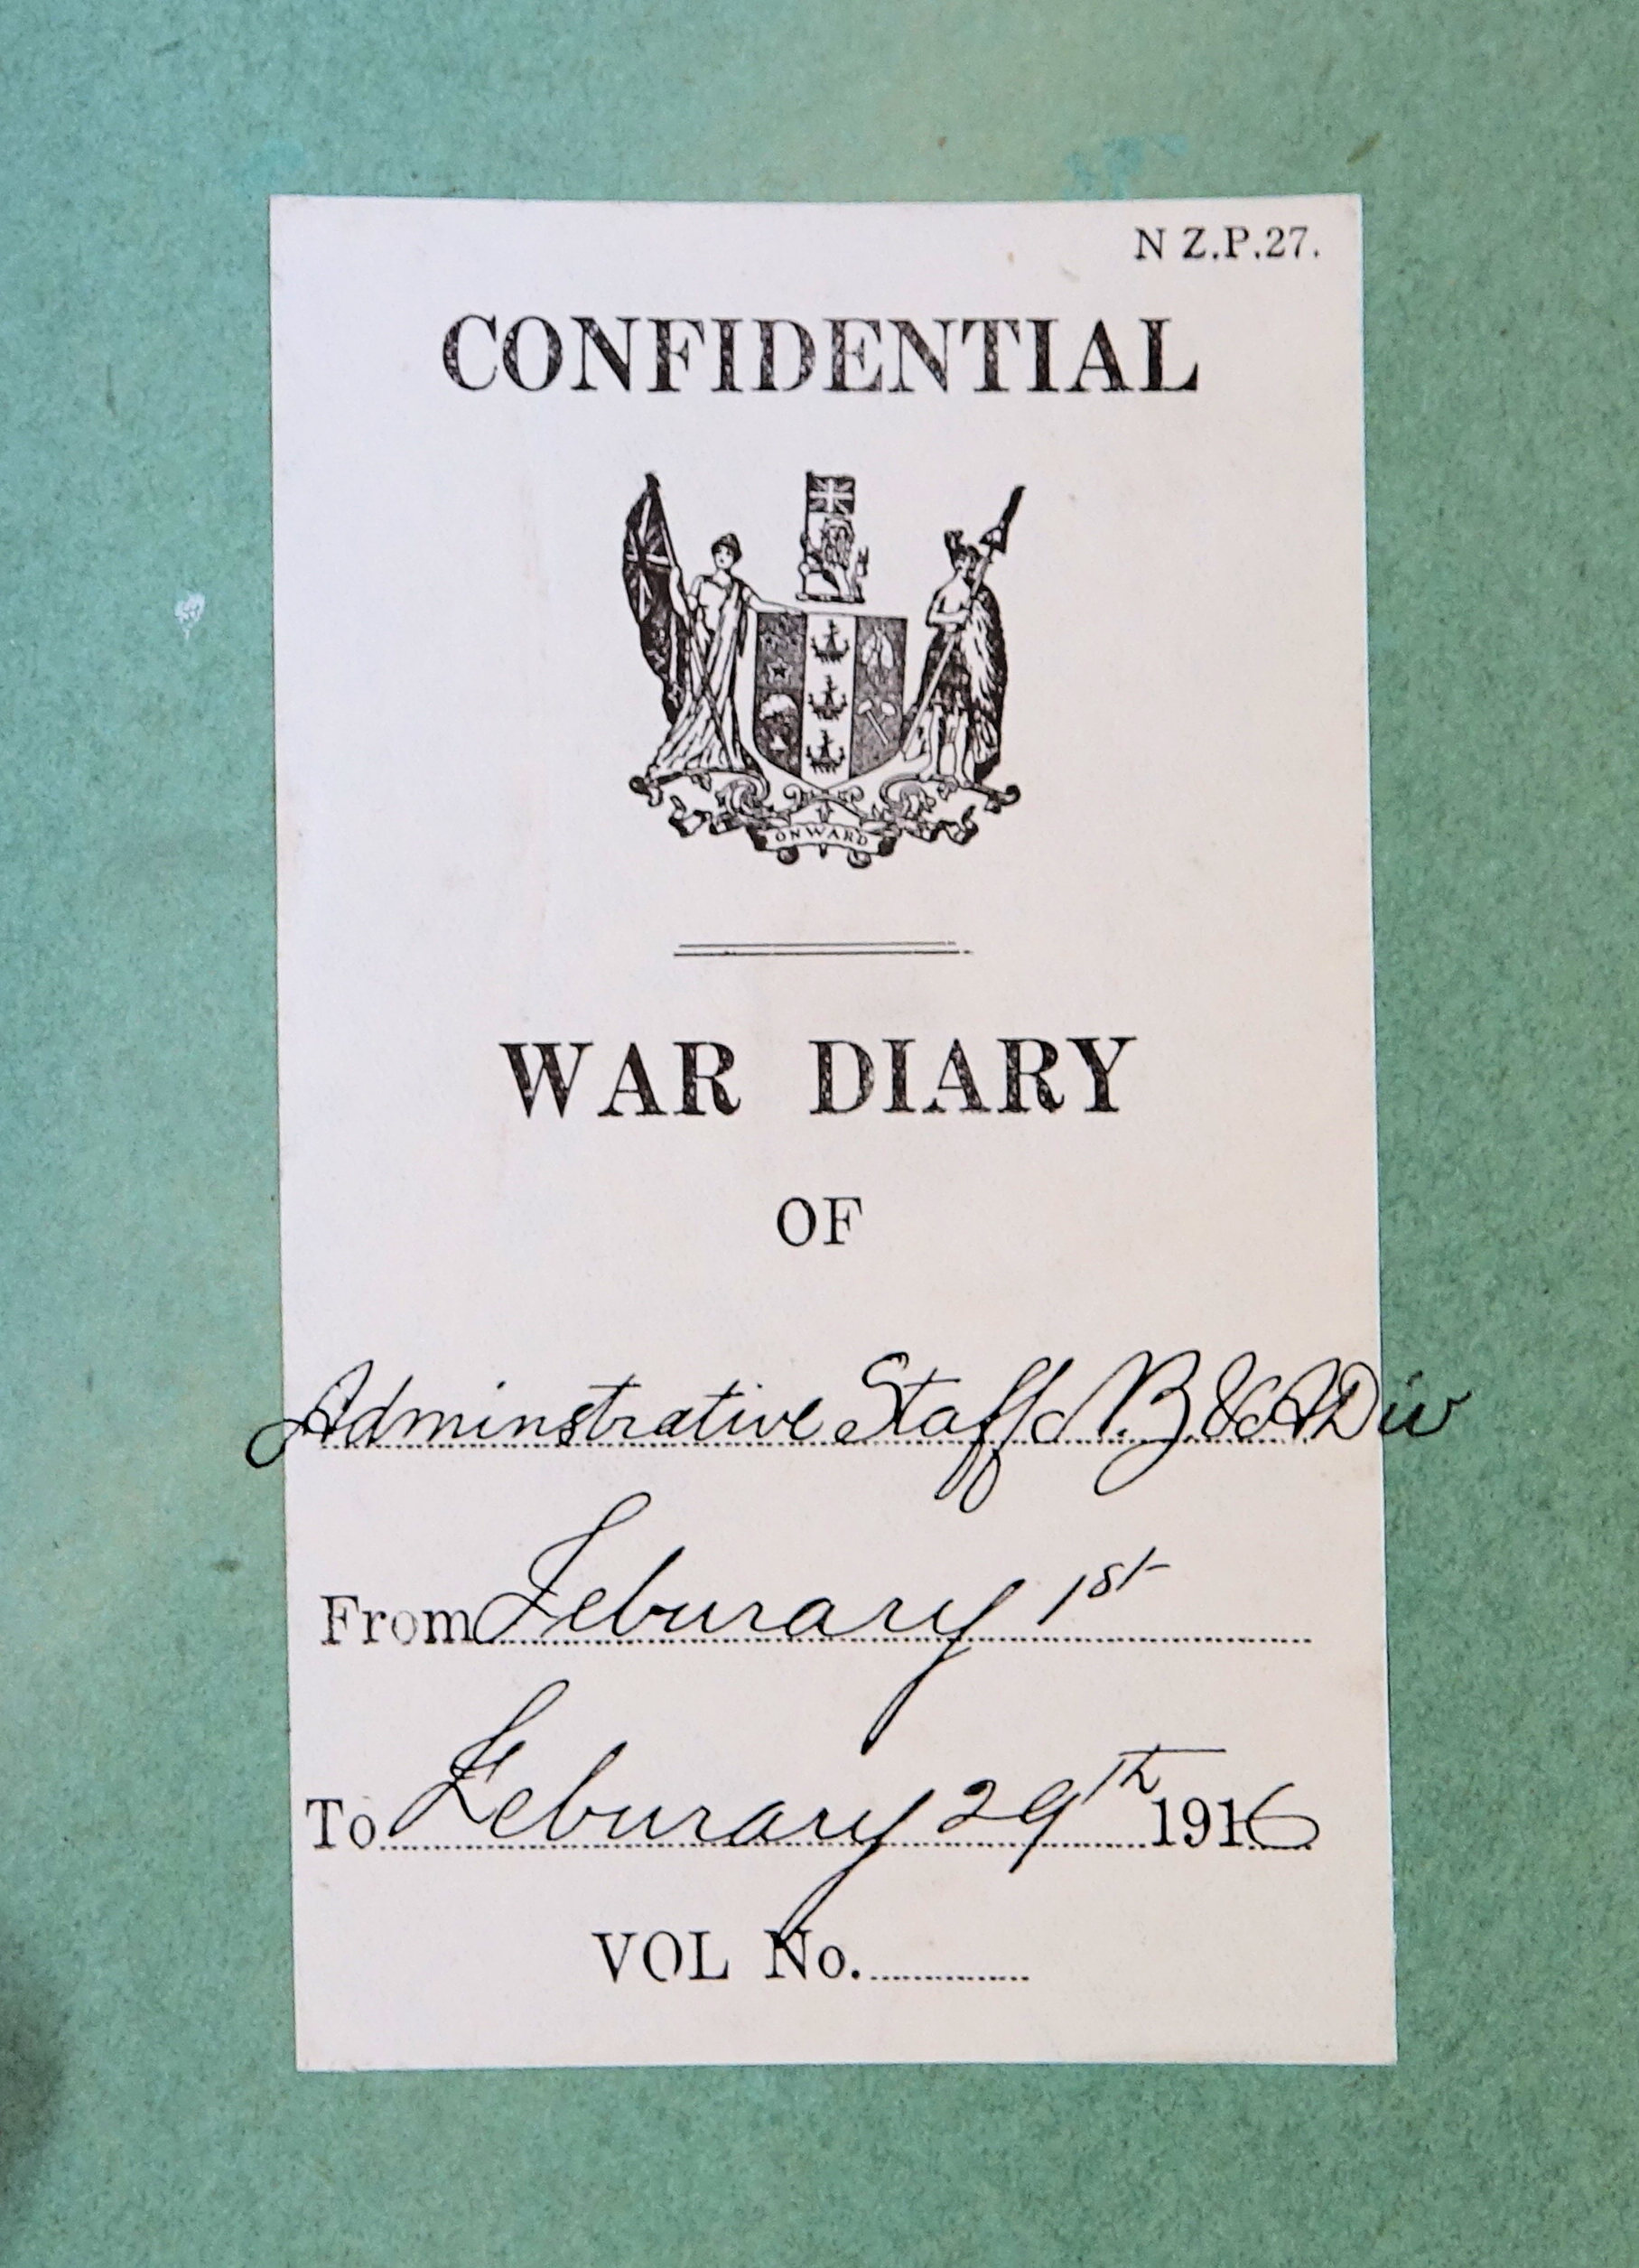 N Z.P.27.
CONFIDENTIAL
ONWARD
WAR DIARY
OF
Adminstrative Staff N.Z & A Div
From Feburary 1st
To Feburary 29th 1916
VOL No.